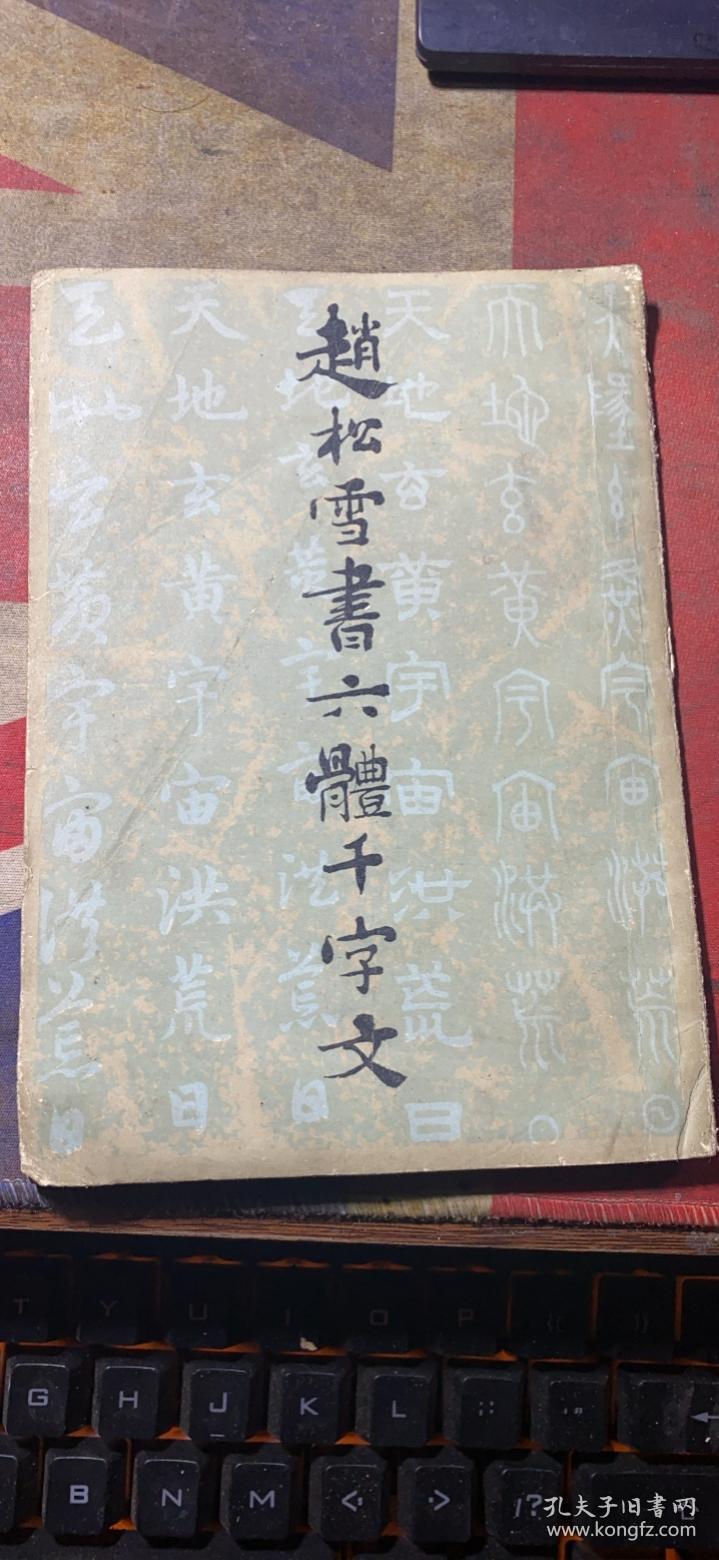 趙松雪書六體千字文
天地玄黃宇宙洪荒日
天地玄黃宇宙洪荒日
天地玄黃宇宙洪荒日
天地玄黃宇宙洪荒日
天地玄黃宇宙洪荒日
天地玄黃宇宙洪荒日
T Y U I O P {[ ]}
G H J K L ;: '"
B N M <, .> /?
孔夫子旧书网
www.kongfz.com